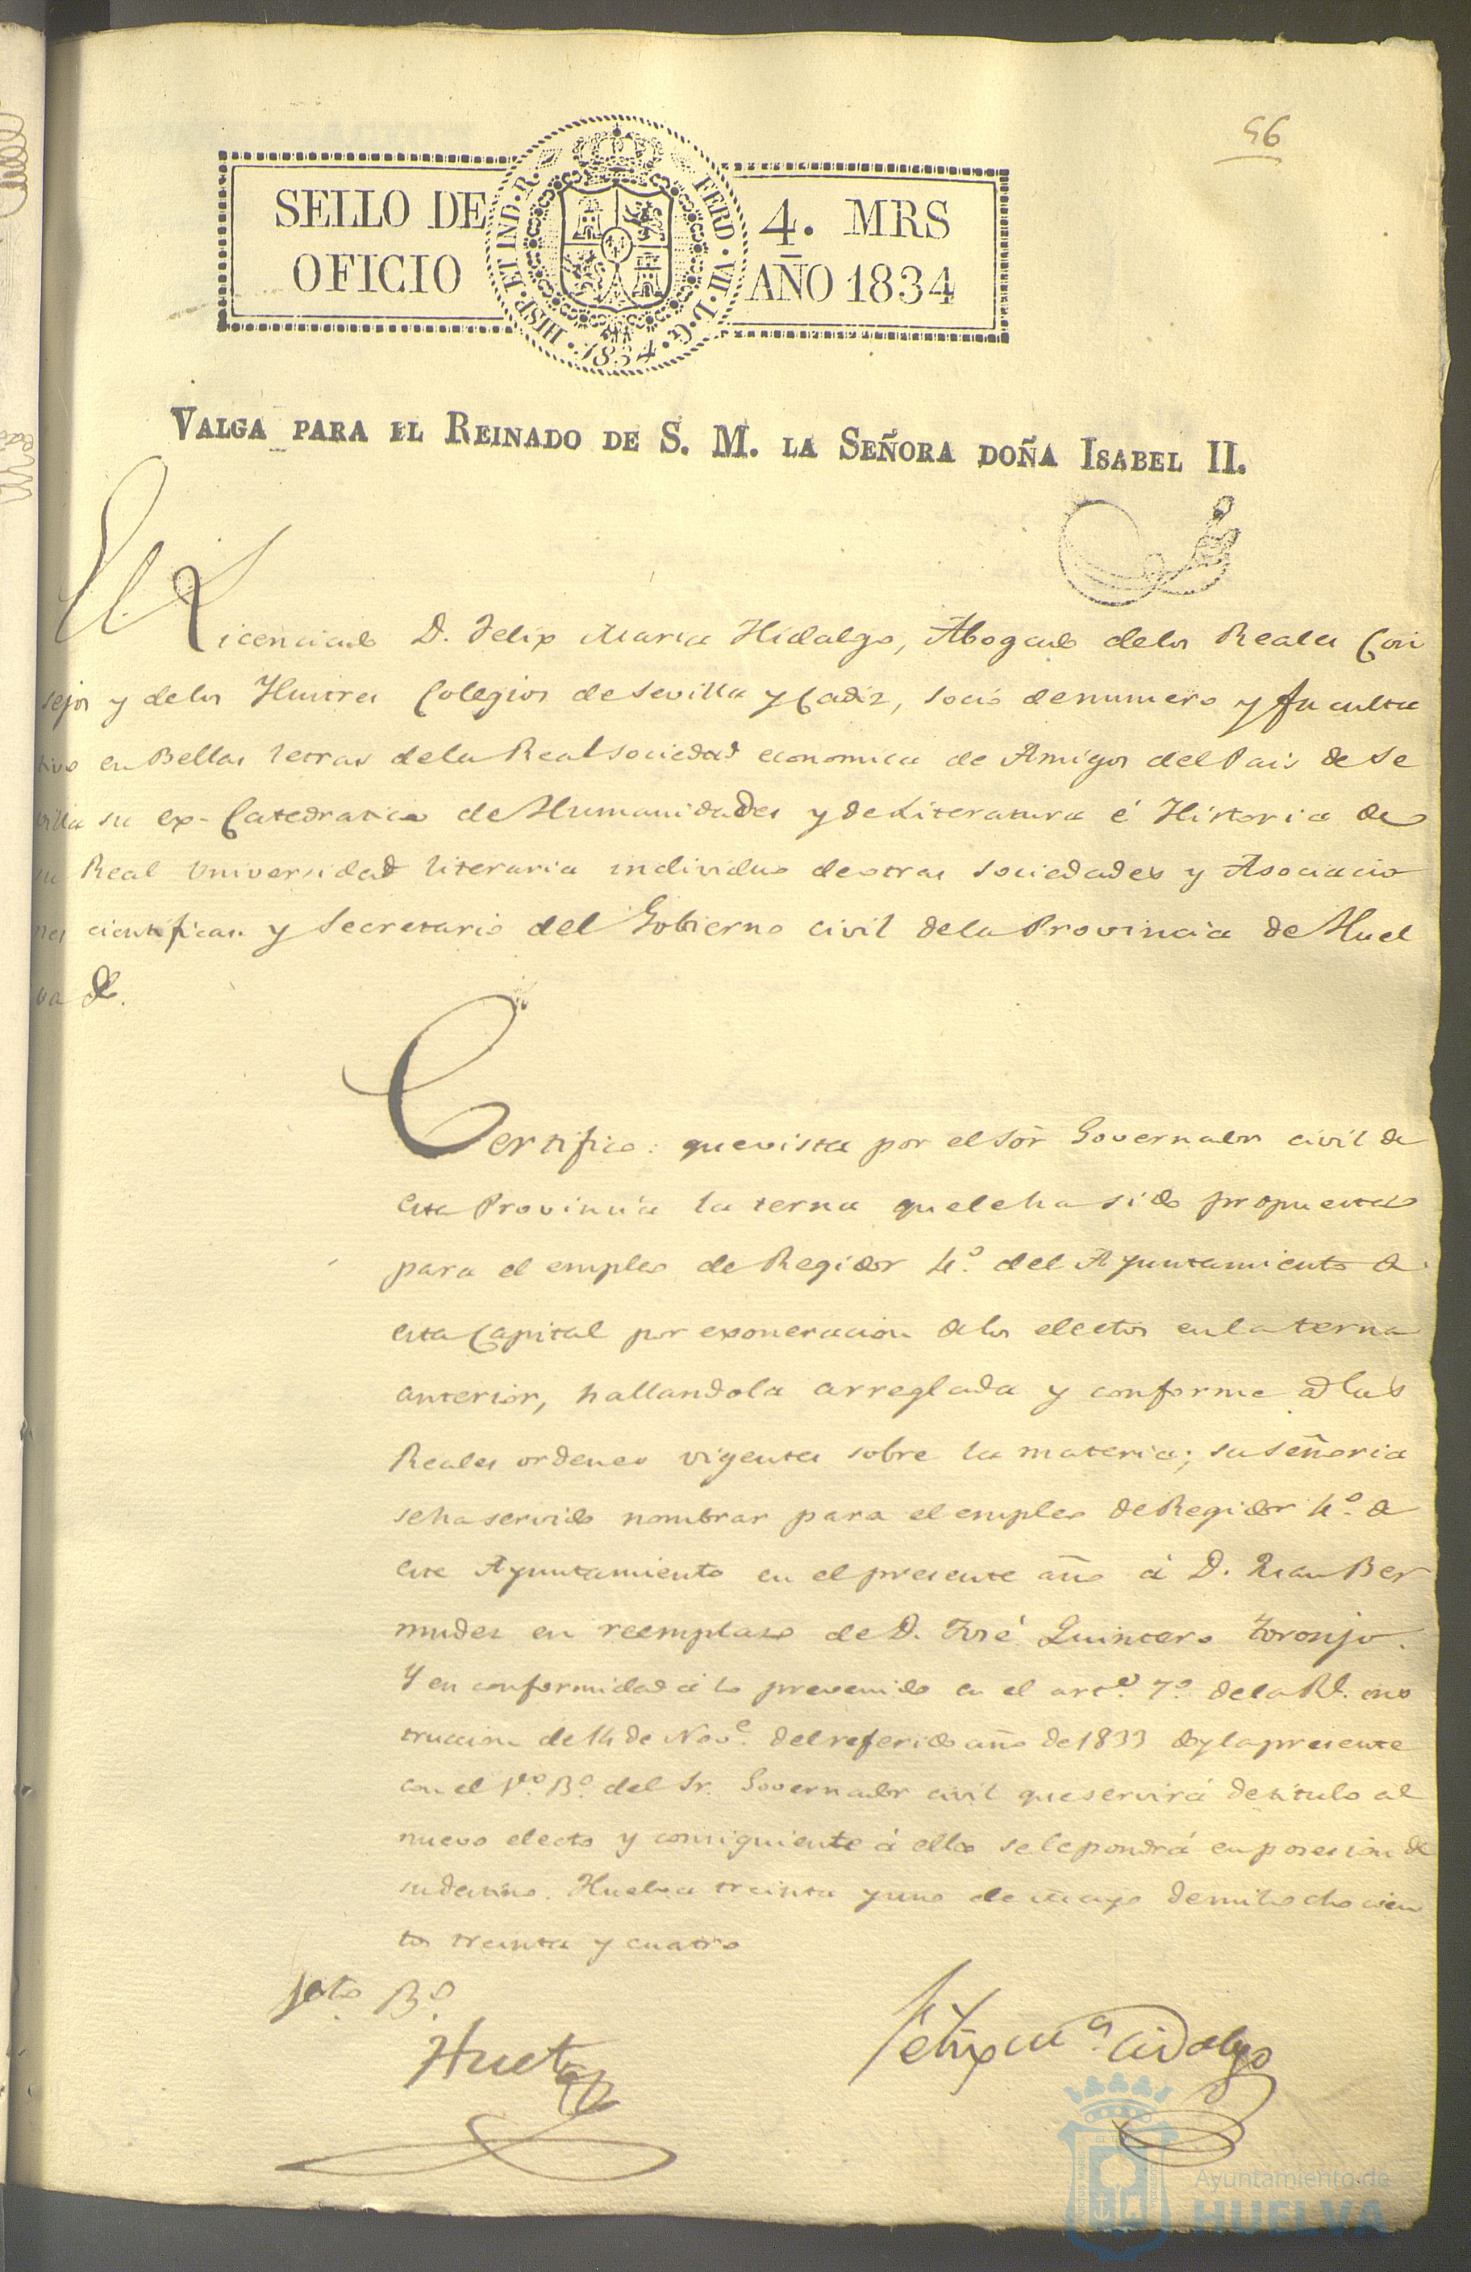 56
SELLO DE
OFICIO
4. MRS
AÑO 1834
HISP. ET IND. R. FERD. VII. D. G. 1834
VALGA PARA EL REINADO DE S. M. LA SEÑORA DOÑA ISABEL II.
El Licenciado D. Felix Maria Hidalgo, Abogado delos Reales Con
sejos y delos Ilustres Colegios de Sevilla y Cadiz, socio de numero y faculta
tivo en Bellas letras dela Real sociedad economica de Amigos del Pais de Se
villa su ex-Catedratico de Humanidades y de Literatura é Historia de
su Real Universidad literaria individuo de otras sociedades y Asociacio
nes cientificas y Secretario del Gobierno civil dela Provincia de Huel
va &.
Certifico: que vista por el Sor Governador civil de
esta Provincia la terna que le ha sido propuesta
para el empleo de Regidor 4º. del Ayuntamiento de
esta Capital por exoneracion delos electos en la terna
anterior, hallandola arreglada y conforme a las
Reales ordenes vigentes sobre la materia; su Señoria
se ha servido nombrar para el empleo de Regidor 4º. de
este Ayuntamiento en el presente año á D. Juan Ber
mudes en reemplazo de D. José Quintero Toronjo.
Y en conformidad á lo prevenido en el artº. 7º dela Rl. ins
truccion de 14 de Nove. del referido año de 1833 doy la presente
con el Vº. Bº. del Sr. Governador civil que servirá de titulo al
nuevo electo y consiguiente á ello se le pondrá en posesion de
su destino. Huelva treinta y uno de Mayo de mil ocho cien
tos treinta y cuatro
Vto. Bº.
Huet
Felix Mª Hidalgo
Ayuntamiento de
HUELVA